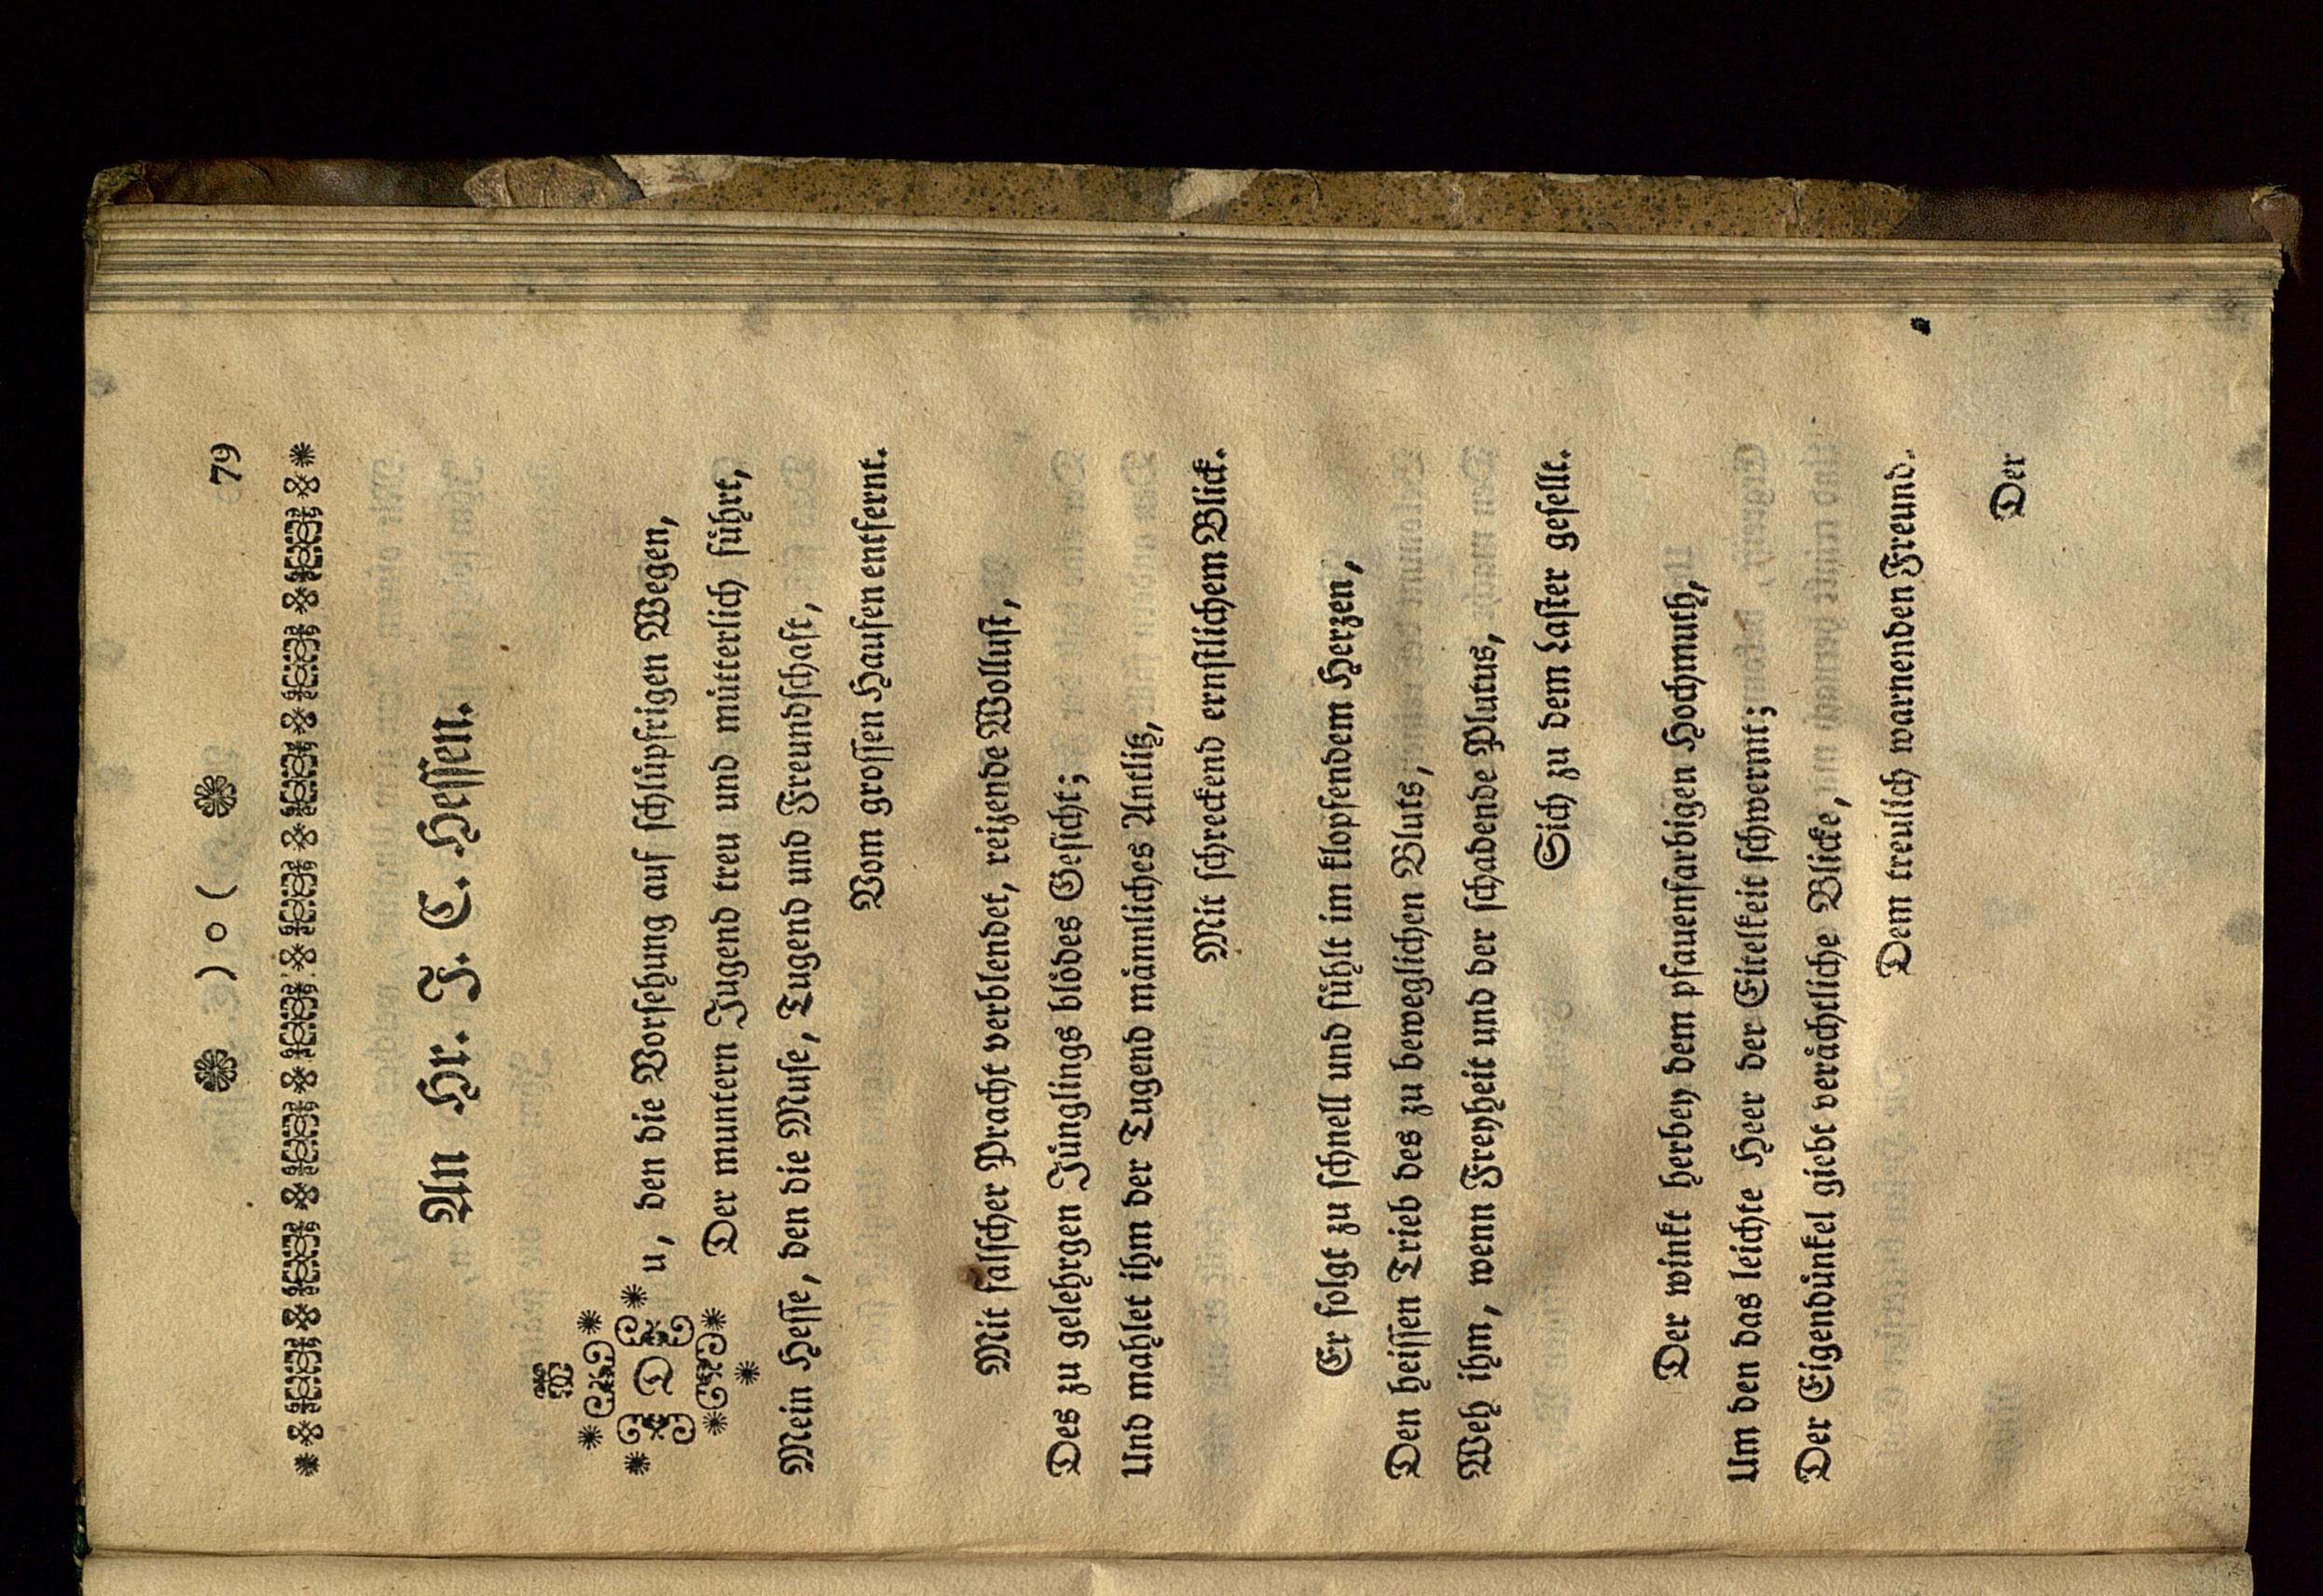 ❁ ) o ( ❁ 79
An Hr. J. C. Hessen.
Du, den die Vorsehung auf schlüpfrigen Wegen,
Der muntern Jugend treu und mütterlich führt,
Mein Hesse, den die Muse, Tugend und Freundschaft,
Vom grossen Haufen entfernt.
Mit falscher Pracht verblendet, reizende Wollust,
Des zu gelehrgen Jünglings blödes Gesicht;
Und mahlet ihm der Tugend männliches Antlitz,
Mit schreckend ernstlichem Blick.
Er folgt zu schnell und fühlt im klopfendem Herzen,
Den heissen Trieb des zu beweglichen Bluts,
Weh ihm, wenn Freyheit und der schadende Plutus,
Sich zu dem Laster gesellt.
Der winkt herbey dem pfauenfarbigen Hochmuth,
Um den das leichte Heer der Eitelkeit schwermt;
Der Eigendünkel giebt verächtliche Blicke,
Dem treulich warnenden Freund.
Der